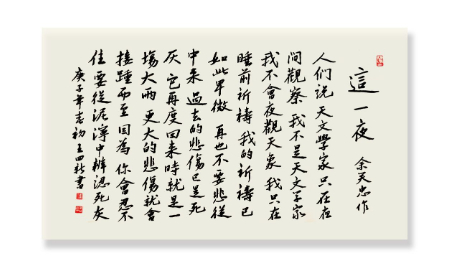 這一夜 余天忠作
人们说 天文學家只在
间觀察 我不是天文学家
我不會夜觀天象 我只在
睡前祈禱 我的祈禱已
如此卑微 再也不要悲從
中来 過去的悲傷已是死
灰 它再度回来時就是一
場大雨 更大的悲傷就會
接踵而至 因為 你會忍不
住要從泥濘中辨認死灰
庚子年